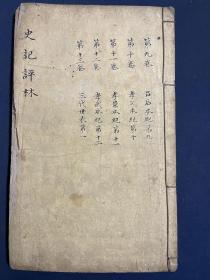 史記評林
第九卷 呂后本紀第九
第十卷 孝文本紀第十
第十一卷 孝景本紀第十一
第十二卷 孝武本紀第十二
第十三卷 三代世表第一